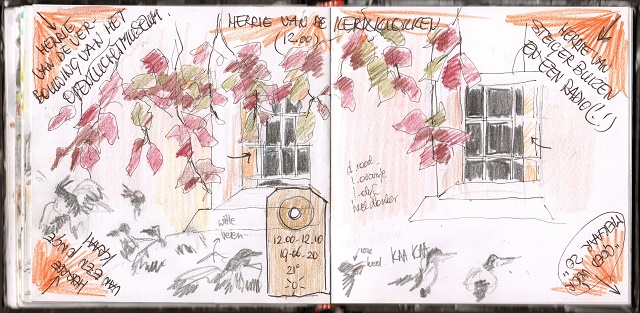 HERRIE
VAN DE VER-
BOUWING VAN HET
OPENLUCHTMUSEUM!
HERRIE VAN DE KERKKLOKKEN
(12.00)
HERRIE VAN
STEIGER BUIZEN
EN EEN RADIO(!!)
d.rood.
l.oranje
heel donker
witte
veren
12.00-12.10
19-06-20
21°
KAA KAA
HERRIE
VAN EEN